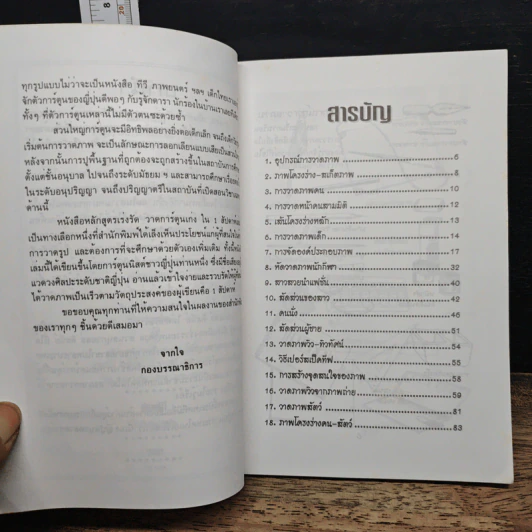 ทุกรูปแบบไม่ว่าจะเป็นหนังสือ ทีวี ภาพยนตร์ ฯลฯ เด็กไทย
จักตัวการ์ตูนของญี่ปุ่นดีพอๆ กับรู้จักดารา นักร้องในบ้านเรา
ทั้งๆ ที่ตัวการ์ตูนเหล่านี้ไม่มีตัวตนซะด้วยซ้ำ
ส่วนใหญ่การ์ตูนจะมีอิทธิพลอย่างยิ่งต่อเด็กเล็ก จนถึงเด็ก
เริ่มต้นการวาดภาพ จะเป็นลักษณะการลอกเลียนแบบเสีย
หลังจากนั้นการปูพื้นฐานที่ถูกต้องจะถูกสร้างขึ้นในสถาบัน
ตั้งแต่ชั้นอนุบาล ไปจนถึงระดับมัธยม ฯ และสามารถศึกษา
ในระดับอนุปริญญา จนถึงปริญญาตรีในสถาบันที่เปิดสอน
ด้านนี้
หนังสือหลักสูตรเร่งรัด วาดการ์ตูนเก่ง ใน 1 สัปดาห์
เป็นทางเลือกหนึ่งที่สำนักพิมพ์ได้เล็งเห็นประโยชน์แก่ผู้ที่สนใจ
การวาดรูป และต้องการที่จะศึกษาด้วยตัวเองเพิ่มเติม
เล่มนี้ได้เขียนขึ้นโดยการ์ตูนนิสต์ชาวญี่ปุ่นท่านหนึ่ง ซึ่งมีชื่อเสียง
แวดวงศิลปะระดับชาติญี่ปุ่น อ่านแล้วเข้าใจง่ายและรวบรัด
ได้วาดภาพเป็นเร็วตามวัตถุประสงค์ของผู้เขียนคือ 1 สัปดาห์
ขอขอบคุณทุกท่านที่ให้ความสนใจในผลงานของสำนัก
ของเราทุกๆ ชิ้นด้วยดีเสมอมา
จากใจ
กองบรรณาธิการ
สารบัญ
1. อุปกรณ์การวาดภาพ 6
2. ภาพโครงร่าง-สเก็ตภาพ 8
3. การวาดภาพคน 10
4. การวาดหน้าคนสามมิติ 12
5. เส้นโครงร่างหลัก 13
6. การวาดภาพเด็ก 14
7. การจัดองค์ประกอบภาพ 17
8. หัดวาดภาพนักกีฬา 32
9. สาวสวยนำแฟชั่น 40
10. สัดส่วนของสาว 42
11. คนนั่ง 46
12. สัดส่วนผู้ชาย 51
13. วาดภาพวิว-ทิวทัศน์ 54
14. วิธีเปอร์สเป็คทีฟ 55
15. การสร้างจุดสนใจของภาพ 58
16. วาดภาพวิวจากภาพถ่าย 59
17. วาดภาพสัตว์ 81
18. ภาพโครงร่างคน-สัตว์ 83